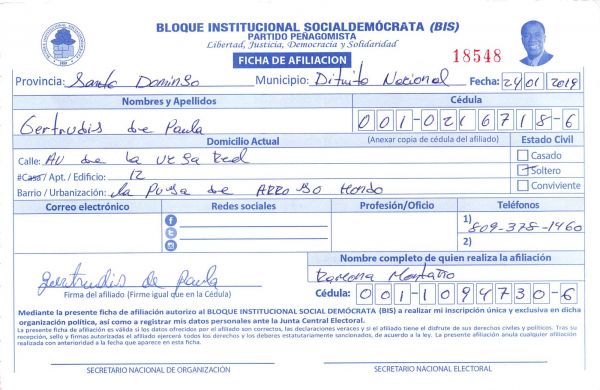 BLOQUE INSTITUCIONAL SOCIALDEMÓCRATA (BIS)
PARTIDO PEÑAGOMISTA
Libertad, Justicia, Democracia y Solidaridad
FICHA DE AFILIACION
18548
Provincia: Santo Domingo Municipio: Ditrito Nacional Fecha: 24/01/2019
Nombres y Apellidos Cédula
Gertrudis de Paula 001-0216718-6
Domicilio Actual (Anexar copia de cédula del afiliado) Estado Civil
Calle: AV de La Vega Real Casado
#Casa / Apt. / Edificio: 12 Soltero
Barrio / Urbanización: La Puya de Arroyo Hondo Conviviente
Correo electrónico Redes sociales Profesión/Oficio Teléfonos
1) 809-378-1460
2)
Nombre completo de quien realiza la afiliación
gertrudis de paula Ramona Montaño
Firma del afiliado (Firme igual que en la Cédula) Cédula: 001-1094730-6
Mediante la presente ficha de afiliación autorizo al BLOQUE INSTITUCIONAL SOCIAL DEMÓCRATA (BIS) a realizar mi inscripción única y exclusiva en dicha
organización política, así como a registrar mis datos personales ante la Junta Central Electoral.
La presente ficha de afiliación es válida si los datos ofrecidos por el afiliado son correctos, las declaraciones veraces y si el afiliado tiene el disfrute de sus derechos civiles y políticos. Tras su
recepción, sello y firmas autorizadas el afiliado ejercerá todos los derechos y deberes estatutariamente sancionados, de acuerdo a la ley. La presente afiliación anula cualquier afiliación
realizada con anterioridad a la fecha que aparece en esta ficha.
SECRETARIO NACIONAL DE ORGANIZACIÓN SECRETARIO NACIONAL ELECTORAL